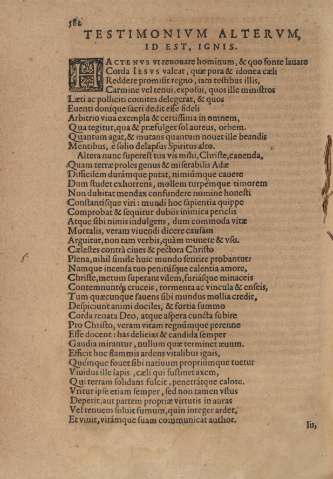 582
TESTIMONIVM ALTERVM,
ID EST, IGNIS.
HACTENVS vt renouare hominum, & quo fonte lauaro
Corda IESVS valeat, quæ pura & idonea cæli
Reddere promisit regno, iam testibus illis,
Carmine vel tenui, exposui, quos ille ministros
Læti ac polliciti comites delegerat, & quos
Euenti donique sacri dedit esse fideli
Arbitrio viua exempla & certissima in omnem,
Qua tegitur, qua & præfulget sol aureus, orbem.
Quantum agat, & mutans quantum nouet ille beandis
Mentibus, è solio delapsus Spiritus alto.
Altera nunc superest tua vis mihi, Christe, canenda,
Quam terræ proles genus & miserabilis Adæ
Difficilem durámque putat, nimiúmque cauere
Dum studet exhorrens, mollem turpémque timorem
Non dubitat mendax confundere nomine honesti
Constantísque viri: mundi hoc sapientia quippe
Comprobat & sequitur dubijs inimica periclis
Atque sibi nimis indulgens, dum commoda vitæ
Mortalis, veram viuendi dicere causam
Arguitur, non tam verbis, quàm munere & vsu.
Cælestes contrà ciues & pectora Christo
Plena, nihil simile huic mundo sentire probantur:
Namque incensa tuo penitúsque calentia amore,
Christe, metum superant vilem, furiásque minaceis
Contemnunt, cruceis, tormenta ac vincula & enseis,
Tum quæcunque fauens sibi mundus mollia credit,
Despiciunt animi dociles, & fortia summo
Corda renata Deo, atque aspera cuncta subire
Pro Christo, veram vitam regnúmque perenne
Esse docent: has delicias & candida semper
Gaudia mirantur, nullum quæ terminet æuum.
Efficit hoc flammis ardens vitalibus ignis,
Quémque fouet sibi natiuum propriúmque tuetur
Viuidus ille lapis, cæli qui sustinet axem,
Qui terram solidans fulcit, penetrátque calore.
Vritur ipse etiam semper, sed non tamen vstus
Deperit, aut partem propriæ virtutis in auras
Vel tenuem soluit fumum, quin integer ardet,
Et viuit, vitámque suam communicat author.
Iis,